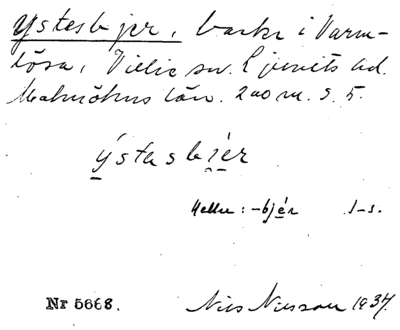 Ystesbjer, backe i Varm-
lösa, Vellie sn. Ljunits hd.
Malmöhus län. 200 m. S. 5.
ýstasbiér
Heller: -bjér 1-s.
Nr 5668. Nils Nilsson 1934.